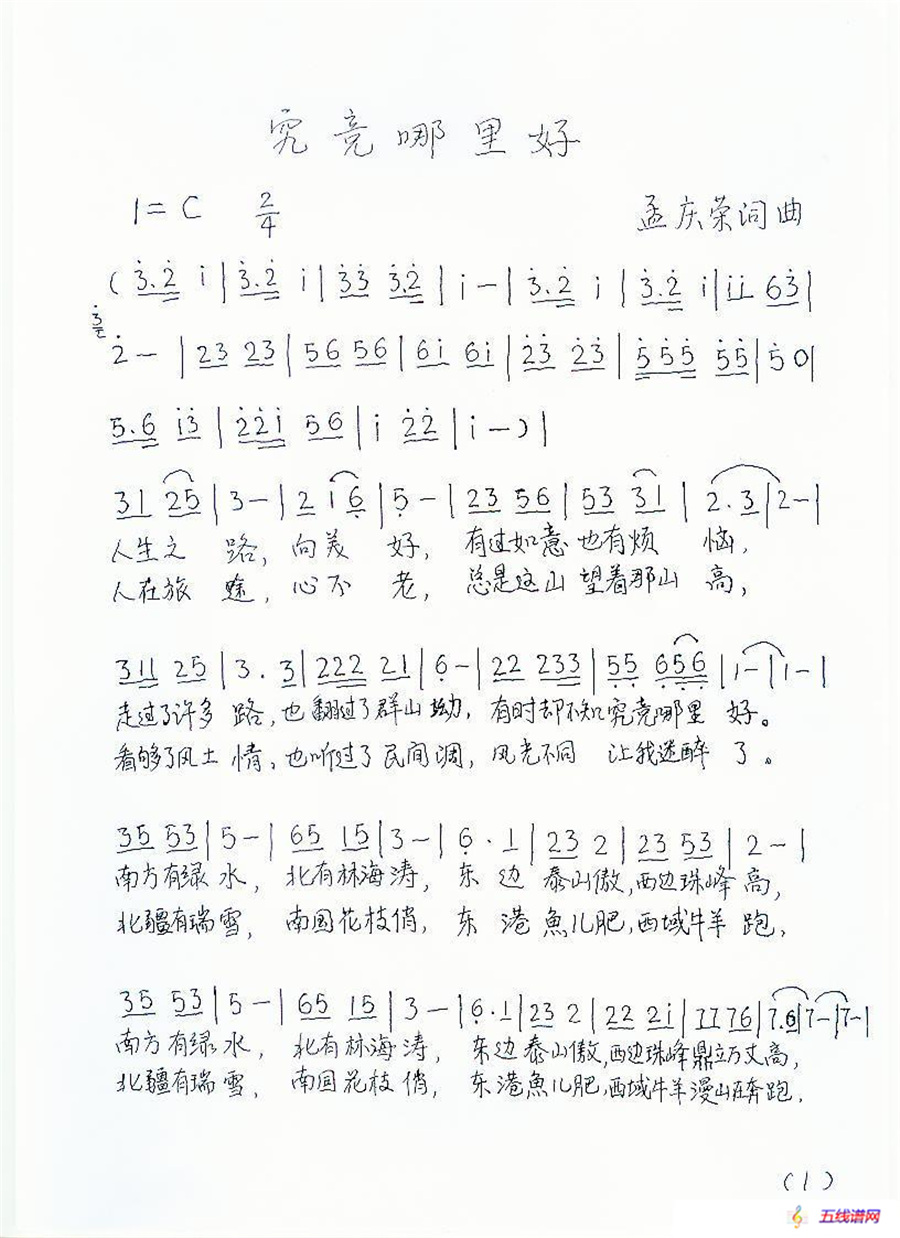 究竟哪里好
1=C 2/4 孟庆荣词曲
(3.2 i|3.2 i|33 3.2|i-|3.2 i|3.2 i|ii 63|
3 2-|23 23|56 56|6i 6i|23 23|555 55|50|
5.6 i3|22i 56|i 22|i-)|
31 25|3-|2 i6|5-|23 56|53 31|2.3|2-|
人生之路,向美好,有过如意也有烦恼,
人在旅途,心不老,总是这山望着那山高,
311 25|3.3|222 21|6-|22 233|55 656|1-|1-|
走过了许多路,也翻过了群山坳,有时却不知究竟哪里好。
看够了风土情,也听过了民间调,风光不同 让我迷醉了。
35 53|5-|65 15|3-|6.1|23 2|23 53|2-|
南方有绿水,北有林海涛,东边泰山傲,西边珠峰高,
北疆有瑞雪,南国花枝俏,东港魚儿肥,西域牛羊跑,
35 53|5-|65 15|3-|6.1|23 2|22 2i|77 76|7.6|7-|7-|
南方有绿水,北有林海涛,东边泰山傲,西边珠峰鼎立万丈高,
北疆有瑞雪,南国花枝俏,东港魚儿肥,西域牛羊漫山在奔跑,
(1)
五线谱网